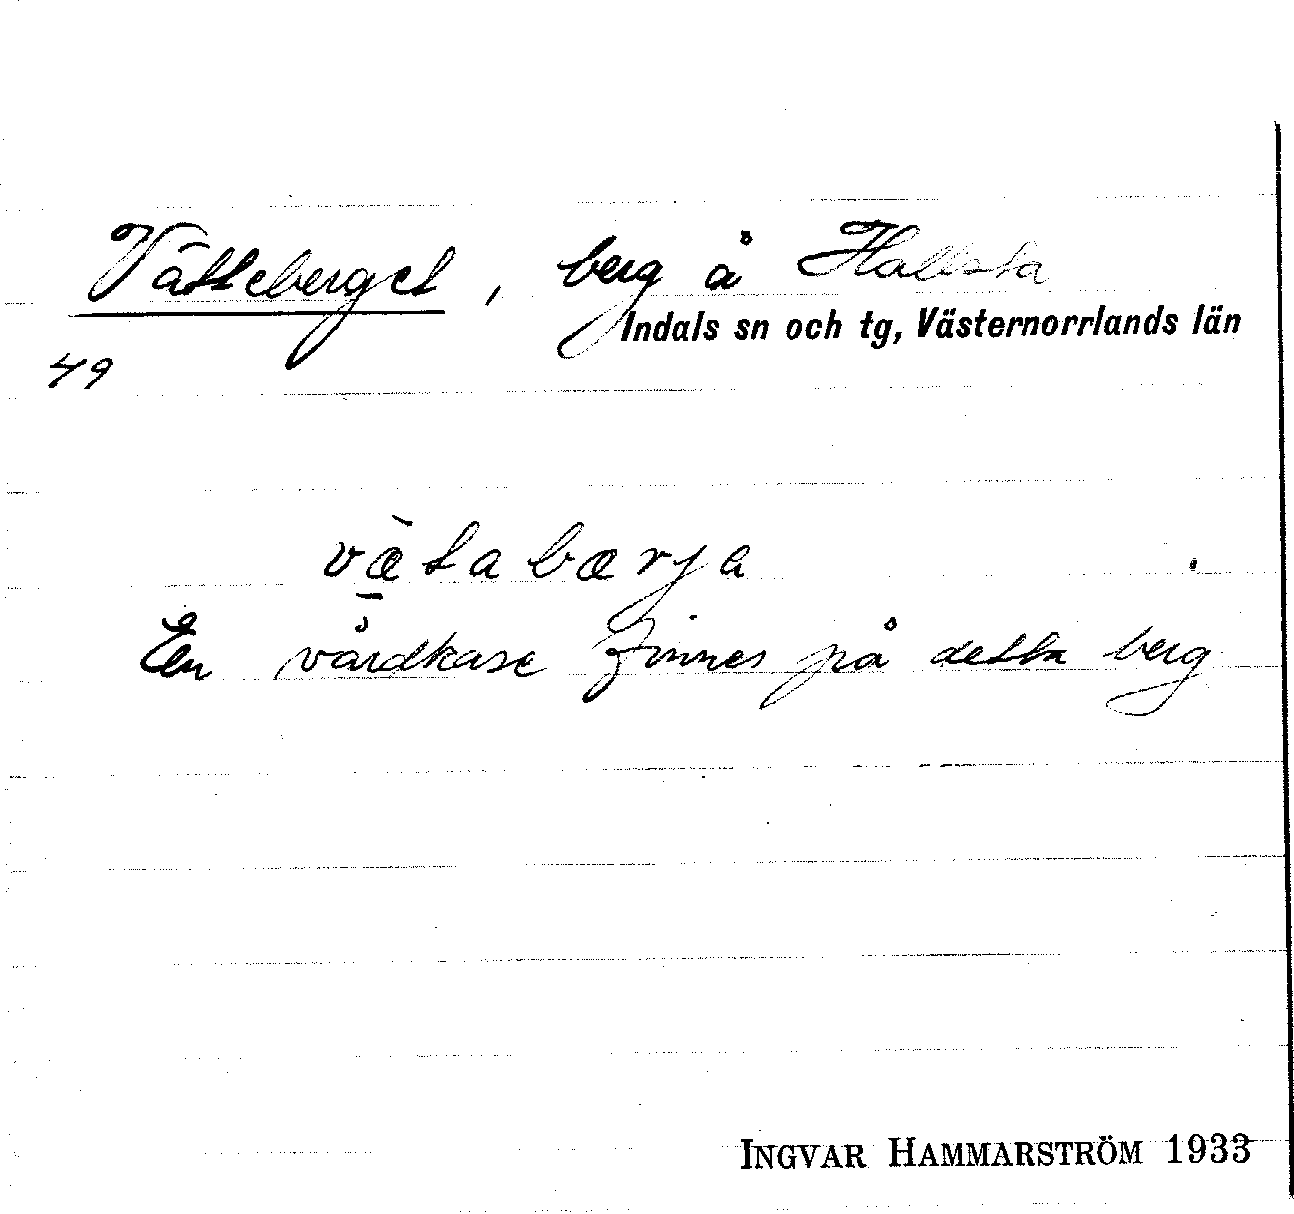 Vätteberget, berg å Hallsta
Indals sn och tg, Västernorrlands län
49
væ̱̀tabærja
En vårdkase finnes på detta berg
INGVAR HAMMARSTRÖM 1933